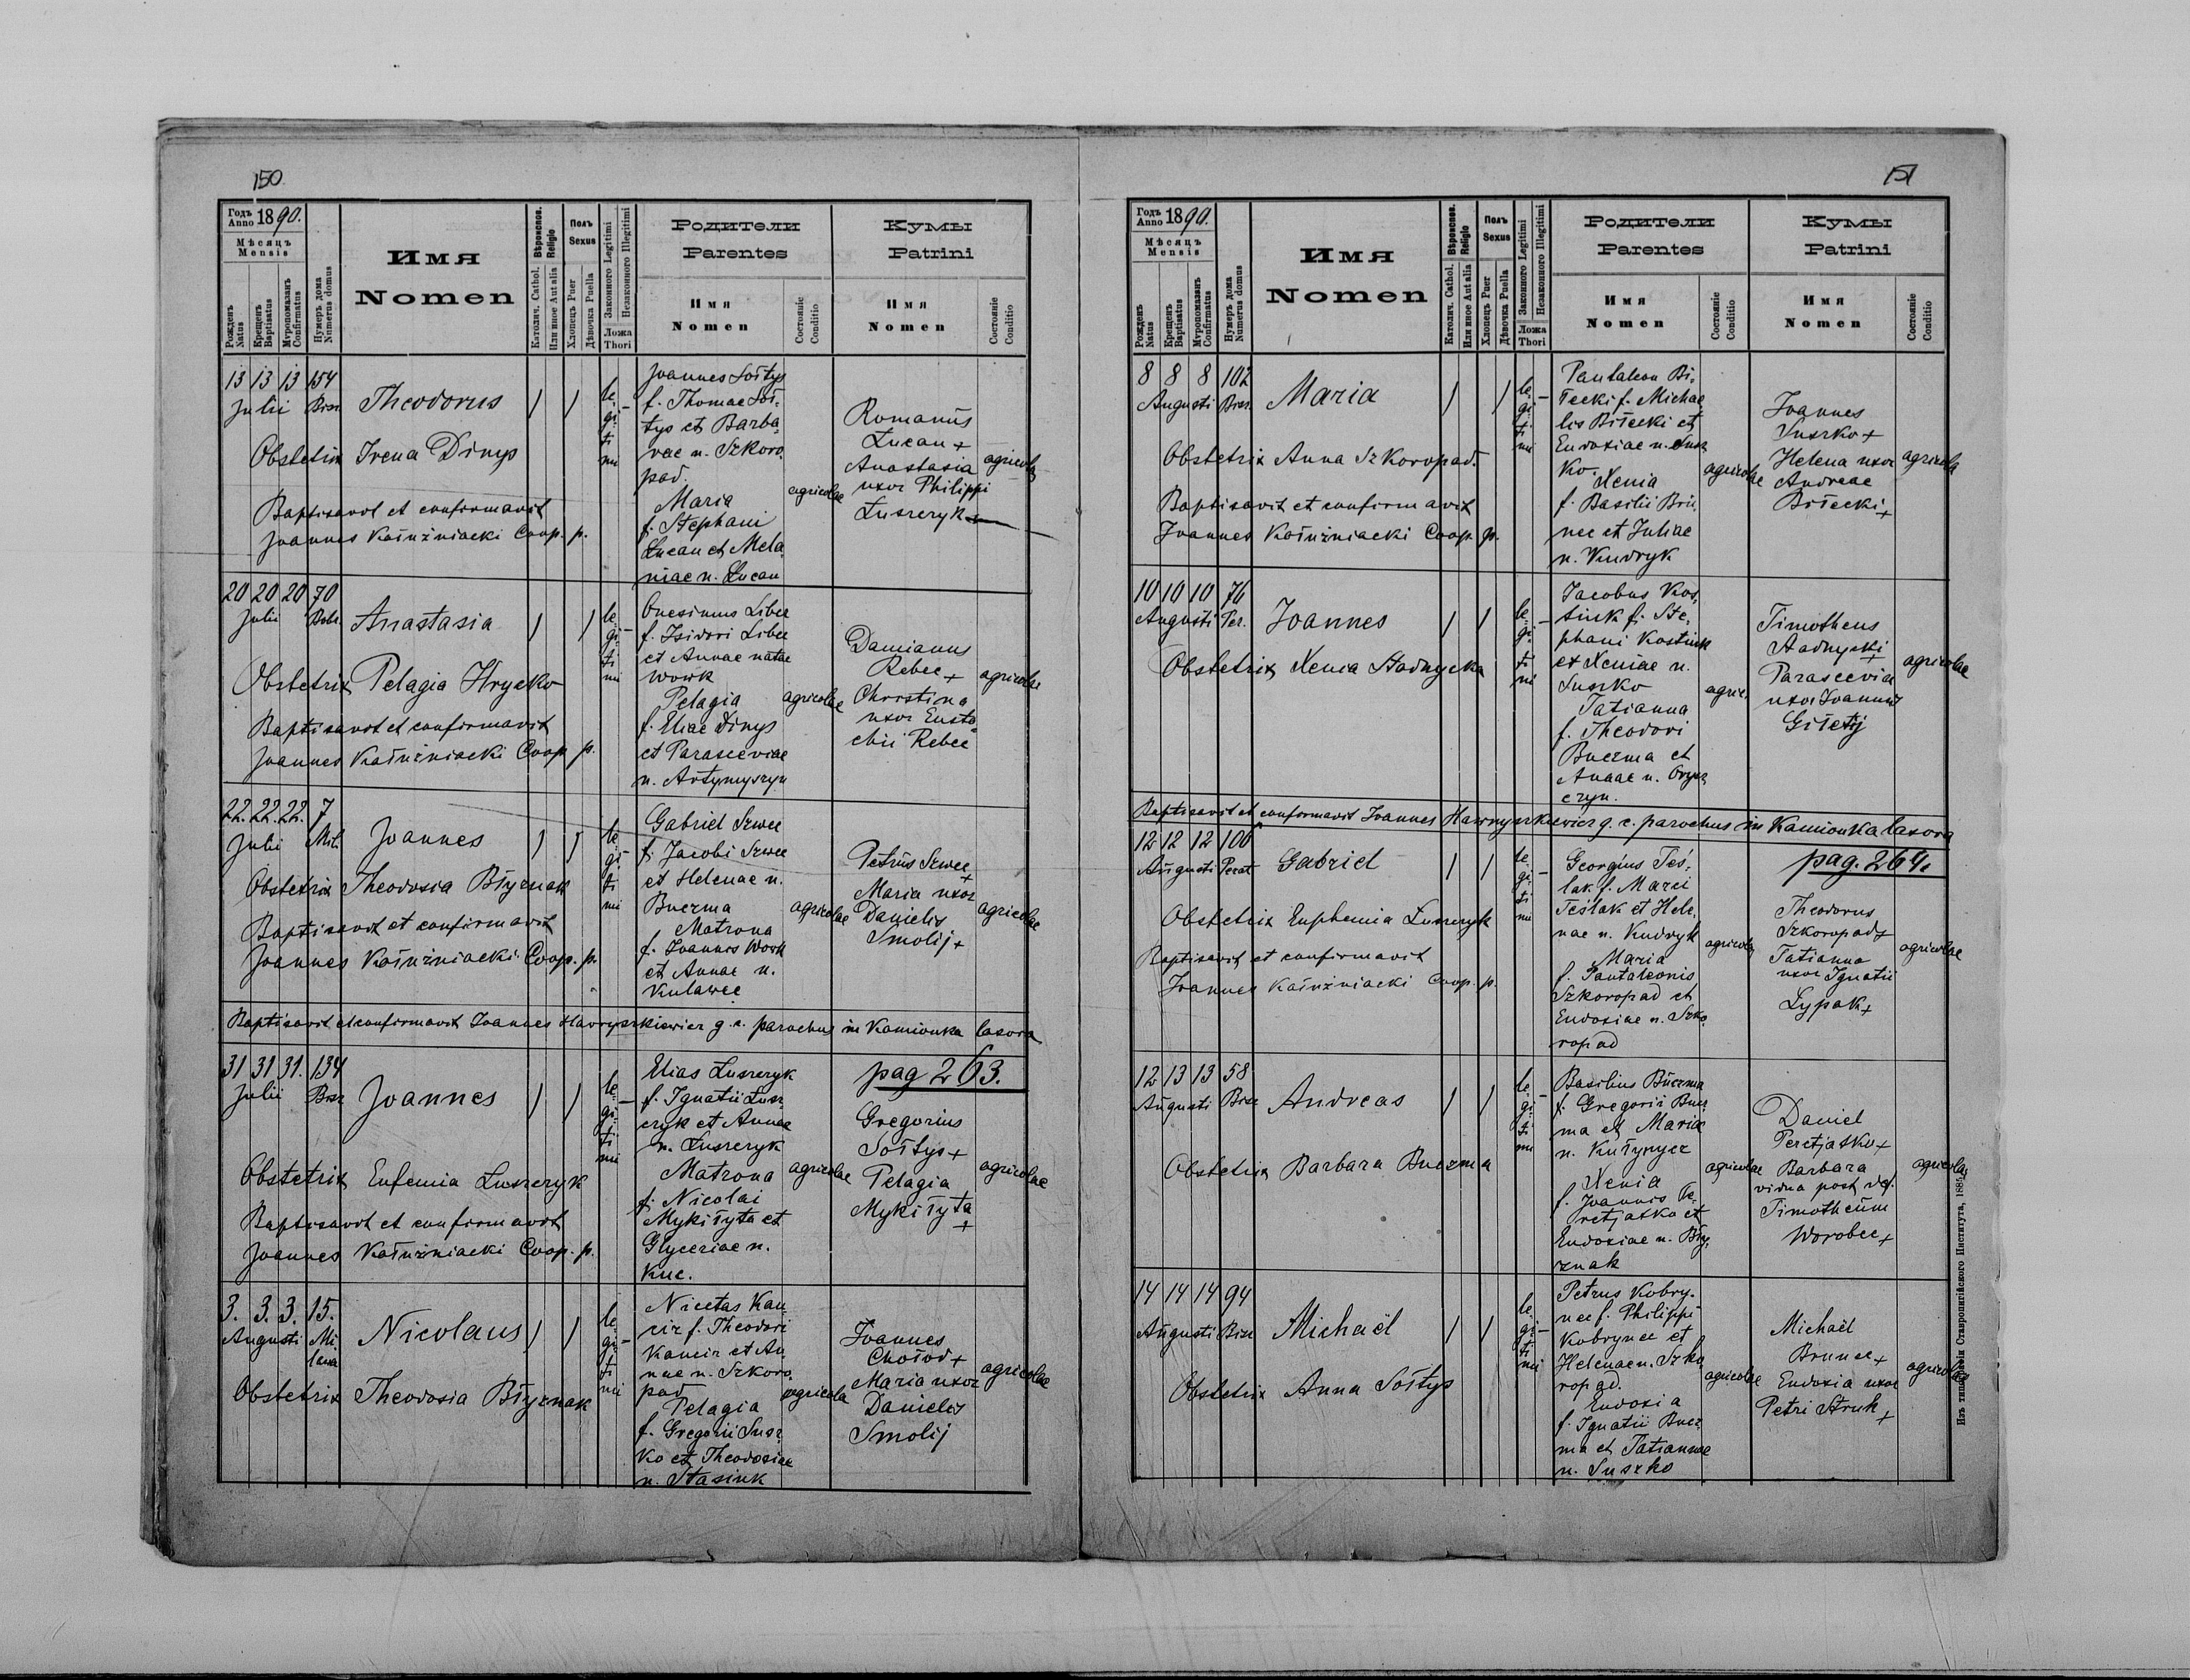 150.
Годъ Anno 1890.
Мѣсяцъ Mensis
Рожденъ Natus
Крещенъ Baptisatus
Мѵропомазанъ Confirmatus
Нумеръ дома Numerus domus
Имя
Nomen
Вѣроиспов. Religio
Католич. Cathol.
Или иное Aut alia
Полъ Sexus
Хлопецъ Puer
Дѣвочка Puella
Законного Legitimi
Незаконного Illegitimi
Ложа Thori
Родители
Parentes
Имя
Nomen
Состояніе Conditio
Кумы
Patrini
Имя
Nomen
Состояніе Conditio
13 13 13 154
Julii Brsz.
Theodorus
le-
gi-
ti
mi
Obstetrix Irena Dinys
Baptisavit et confirmavit
Joannes Kałużniacki Coop. p.
Joannes Sołtys
f. Thomae Soł-
tys et Barba-
rae n. Szkoro
pad.
Maria
f. Stephani
Łucan et Mela
niae n. Łucan
agricolae
Romanus
Łucan +
Anastasia
uxor Philippi
Łuszczyk
agricolae
20 20 20 70
Julii
Anastasia
le-
gi-
ti
mi
Obstetrix Pelagia Hrycko
Baptisavit et confirmavit
Joannes Kałużniacki Coop. p.
Onesimus Libec
f. Isidori Libec
et Annae natae
Wowk
Pelagia
f. Eliae Dinys
et Parasceviae
n. Artymyszyn
agricolae
Damianus
Rebec +
Christina
uxor Eusta
chii Rebec
agricolae
22. 22. 22. 7
Julii Mil.
Joannes
le-
gi-
ti
mi
Obstetrix Theodosia Błyznak
Baptisavit et confirmavit
Joannes Kałużniacki Coop. p.
Gabriel Szwec
f. Jacobi Szwec
et Helenae n.
Buczma
Matrona
f. Joannis Wowk
et Annae n.
Kulawec
agricolae
Petrus Szwec +
Maria uxor
Danielis
Smolij +
agricolae
Baptisavit et confirmavit Joannes Hawryszkiewicz g. c. parochus in Kamionka lasowa
pag 263.
31 31 31. 134
Julii Brsz
Joannes
le-
gi-
ti
mi
Obstetrix Eufemia Łuszczyk
Baptisavit et confirmavit
Joannes Kałużniacki Coop. p.
Elias Łuszczyk
f. Ignatii Łusz-
czyk et Annae
n. Łuszczyk
Matrona
f. Nicolai
Mykiłyta et
Glyceriae n.
Kuc.
agricolae
Gregorius
Sołtys +
Pelagia
Mykiłyta +
agricolae
3. 3. 3. 15.
Augusti Mi-
lawa
Nicolaus
le-
gi-
ti
mi
Obstetrix Theodosia Błyznak
Nicetas Kan
cir f. Theodori
Kancir et An
nae n. Szkoro.
pad
Pelagia
f. Gregorii Susz-
ko et Theodosiae
n. Stasiuk
agricola
Joannes
Chołod +
Maria uxor
Danielis
Smolij
agricolae
151
Годъ Anno 1890.
Мѣсяцъ Mensis
Рожденъ Natus
Крещенъ Baptisatus
Мѵропомазанъ Confirmatus
Нумеръ дома Numerus domus
Имя
Nomen
Вѣроиспов. Religio
Католич. Cathol.
Или иное Aut alia
Полъ Sexus
Хлопецъ Puer
Дѣвочка Puella
Законного Legitimi
Незаконного Illegitimi
Ложа Thori
Родители
Parentes
Имя
Nomen
Состояніе Conditio
Кумы
Patrini
Имя
Nomen
Состояніе Conditio
8 8 8 102
Augusti Brsz.
Maria
le-
gi-
ti
mi
Obstetrix Anna Szkoropad.
Baptisavit et confirmavit
Joannes Kałużniacki Coop. p.
Pantaleon Bi-
łecki f. Michae
lis Biłecki et
Eudoxiae n. Susz
ko.
Xenia
f. Basilii Bru-
nec et Juliae
n. Kudryk
agricolae
Joannes
Suszko +
Helena uxor
Andreae
Biłecki +
agricola
10 10 10 76
Augusti Per.
Joannes
le-
gi-
ti
mi
Obstetrix Xenia Stadnycka
Jacobus Kos-
tiuk f. Ste-
phani Kostiuk
et Xeniae n.
Suszko
Tatianna
f. Theodori
Buczma et
Annae n. Orysz
czyn.
agric.
Timotheus
Stadnycki +
Parascevia
uxor Joannis
Giłetij
agricolae
Baptisavit et confirmavit Joannes Hawryszkiewicz g. c. parochus in Kamionka lasowa
pag. 264.
12 12 12 106
Augusti Perat
Gabriel
le-
gi-
ti
mi
Obstetrix Euphemia Łuszczyk
Baptisavit et confirmavit
Joannes Kałużniacki Coop. p.
Georgius Teś-
lak f. Marci
Teślak et Hele-
nae n. Kudryk
Maria
f. Pantaleonis
Szkoropad et
Eudoxiae n. Szko
ropad
agricolae
Theodorus
Szkoropad +
Tatianna
uxor Ignatii
Łypak +
agricolae
12 13 13 58
Augusti Brsz
Andreas
le-
gi-
ti
mi
Obstetrix Barbara Buczma
Basilius Buczma
f. Gregorii Bucz
ma et Maria
n. Kułynycz
Xenia
f. Joannis Pe-
retjatko et
Eudoxiae n. Bły-
znak
agricolae
Daniel
Peretjatko +
Barbara
vidua post def.
Timotheum
Worobec +
agricolae
14 14 14 94
Augusti Brsz
Michaël
le-
gi-
ti
mi
Obstetrix Anna Sołtys
Petrus Kobry-
nec f. Philippi
Kobrynec et
Helenae n. Szko
ropad.
Eudoxia
f. Ignatii Bucz-
ma et Tatiannae
n. Suszko
agricolae
Michaël
Brunec +
Eudoxia uxor
Petri Struk +
agricolae
Изъ типографіи Ставропигійского Института, 1885.